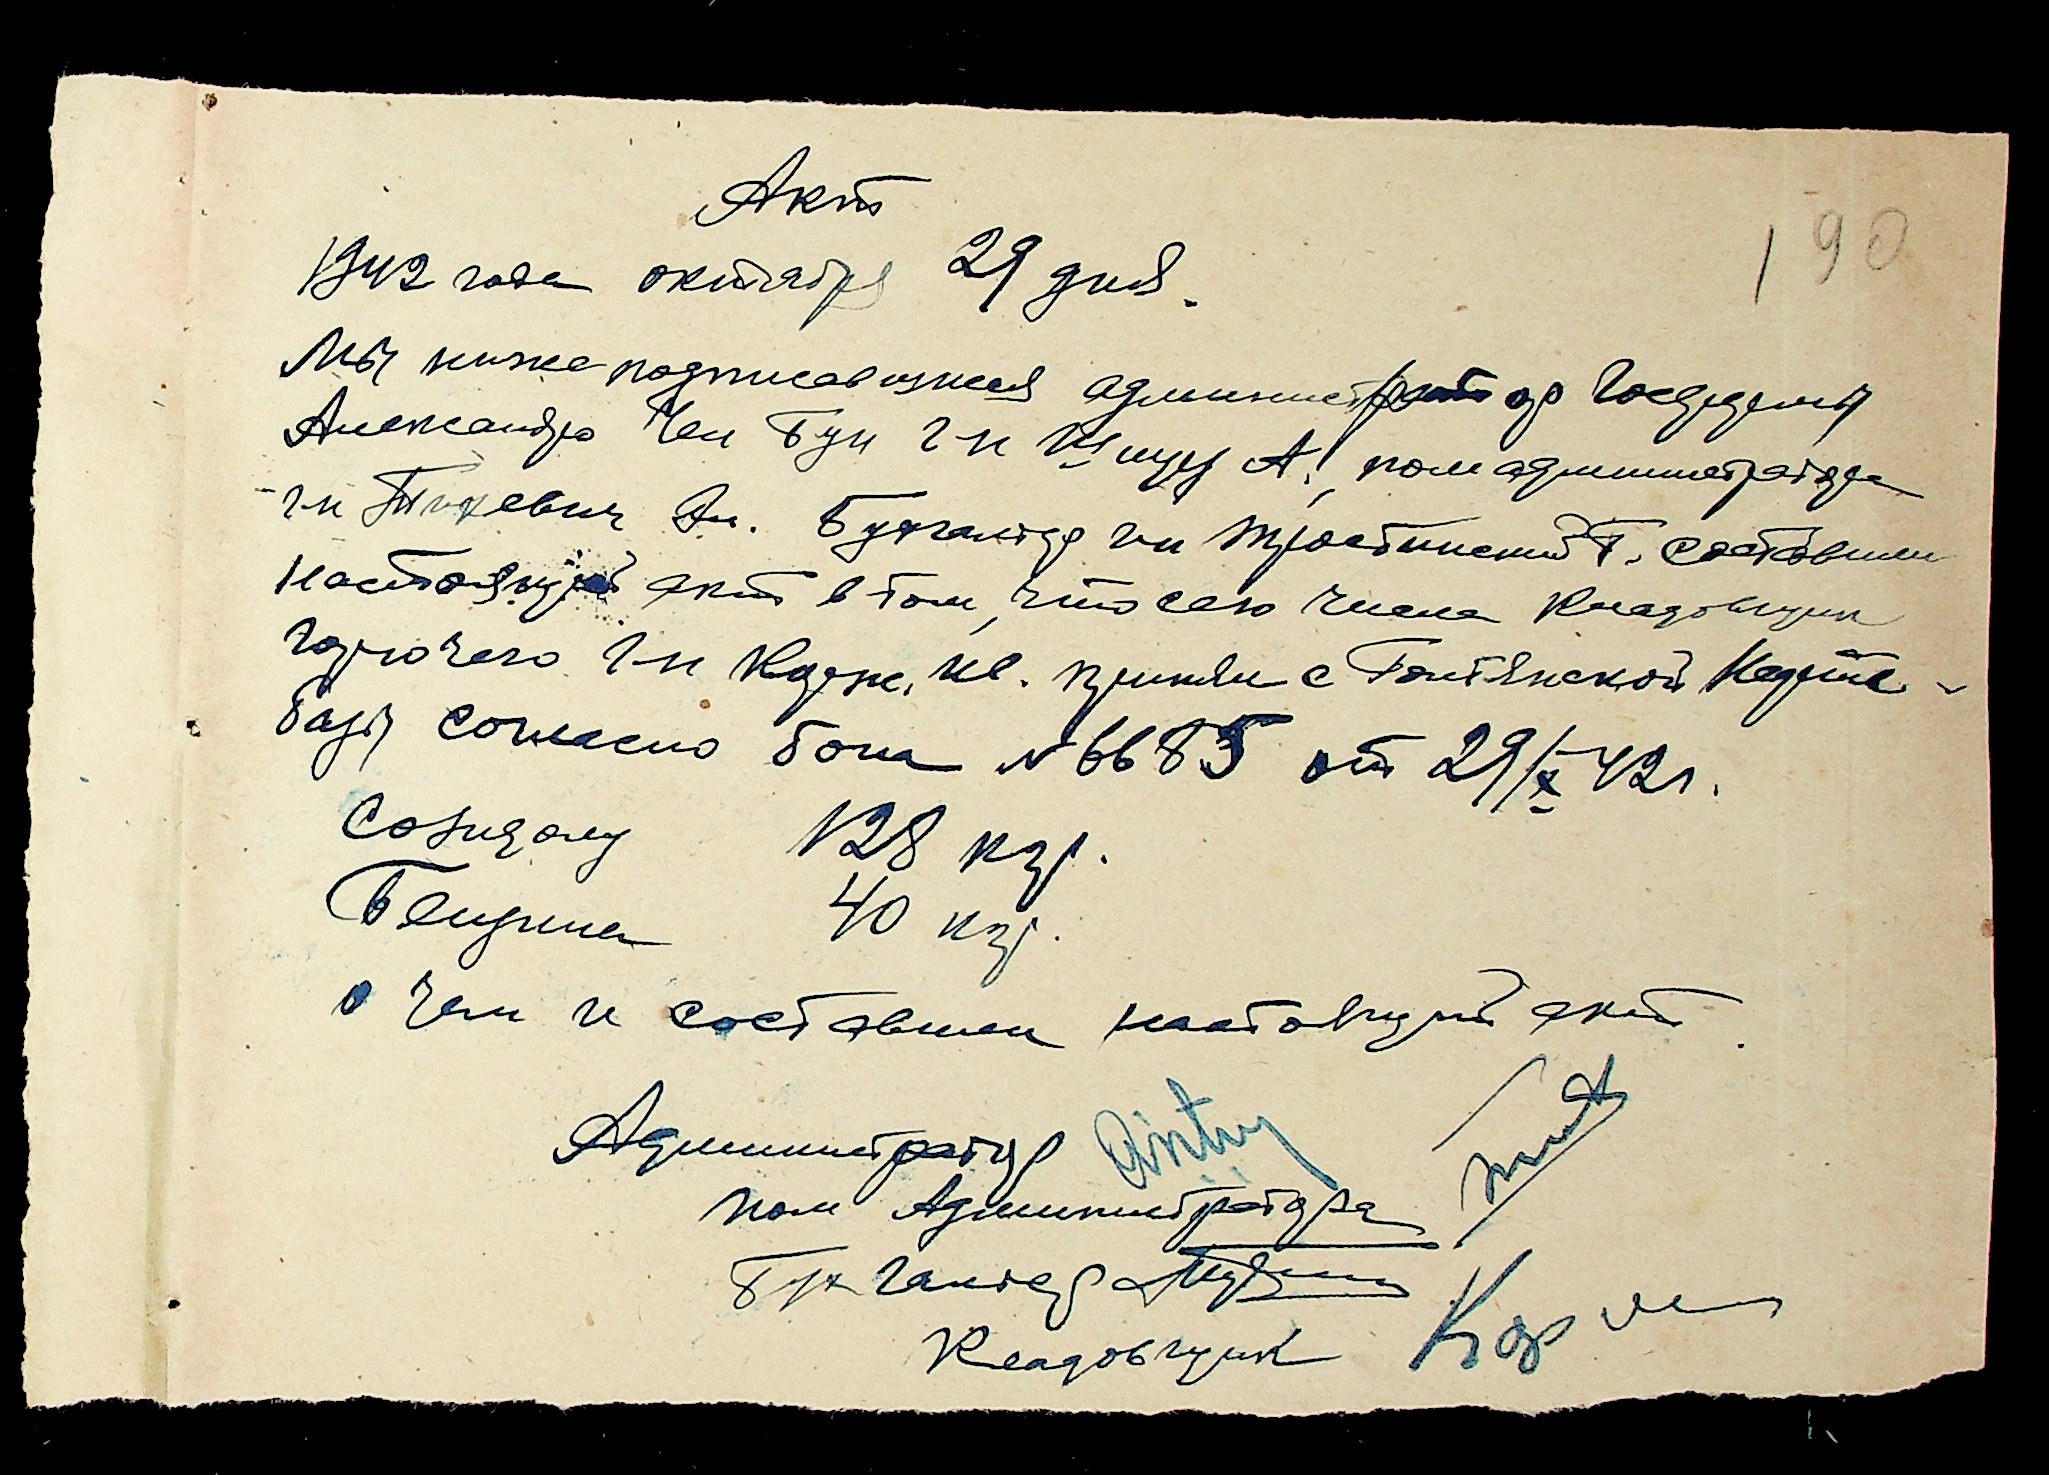 Акт
190
1942 года октября 29 дня.
Мы ниже подписавшиеся администратор Госфермы
Александро Чел Бун г-н А., пом администратора
г-н Ан. Бухгалтер г-н Тростинский Г. составили
настоящий акт в том, что сего числа Кладовщик
горючего г-н Корж. Ив. принял с Голтянской Нефте-
базы согласно бона № 6685 от 29/X 42 г.
Солидолу 128 кгр.
Бензина 40 кгр.
о чем и составили настоящий акт.
Администратор
пом Администратора
Бухгалтер
Кладовщик Корж